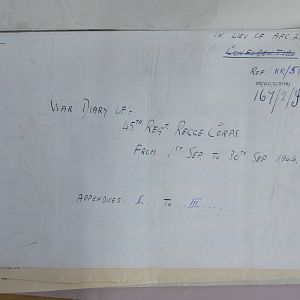 IN LIEU OF AFC 2
CONFIDENTIAL
REF. KR/5
167/2/9
WAR DIARY OF:-
45TH REGT RECCE CORPS.
FROM 1ST SEP TO 30TH SEP 1944.
APPENDICES . I . TO . III . . . .